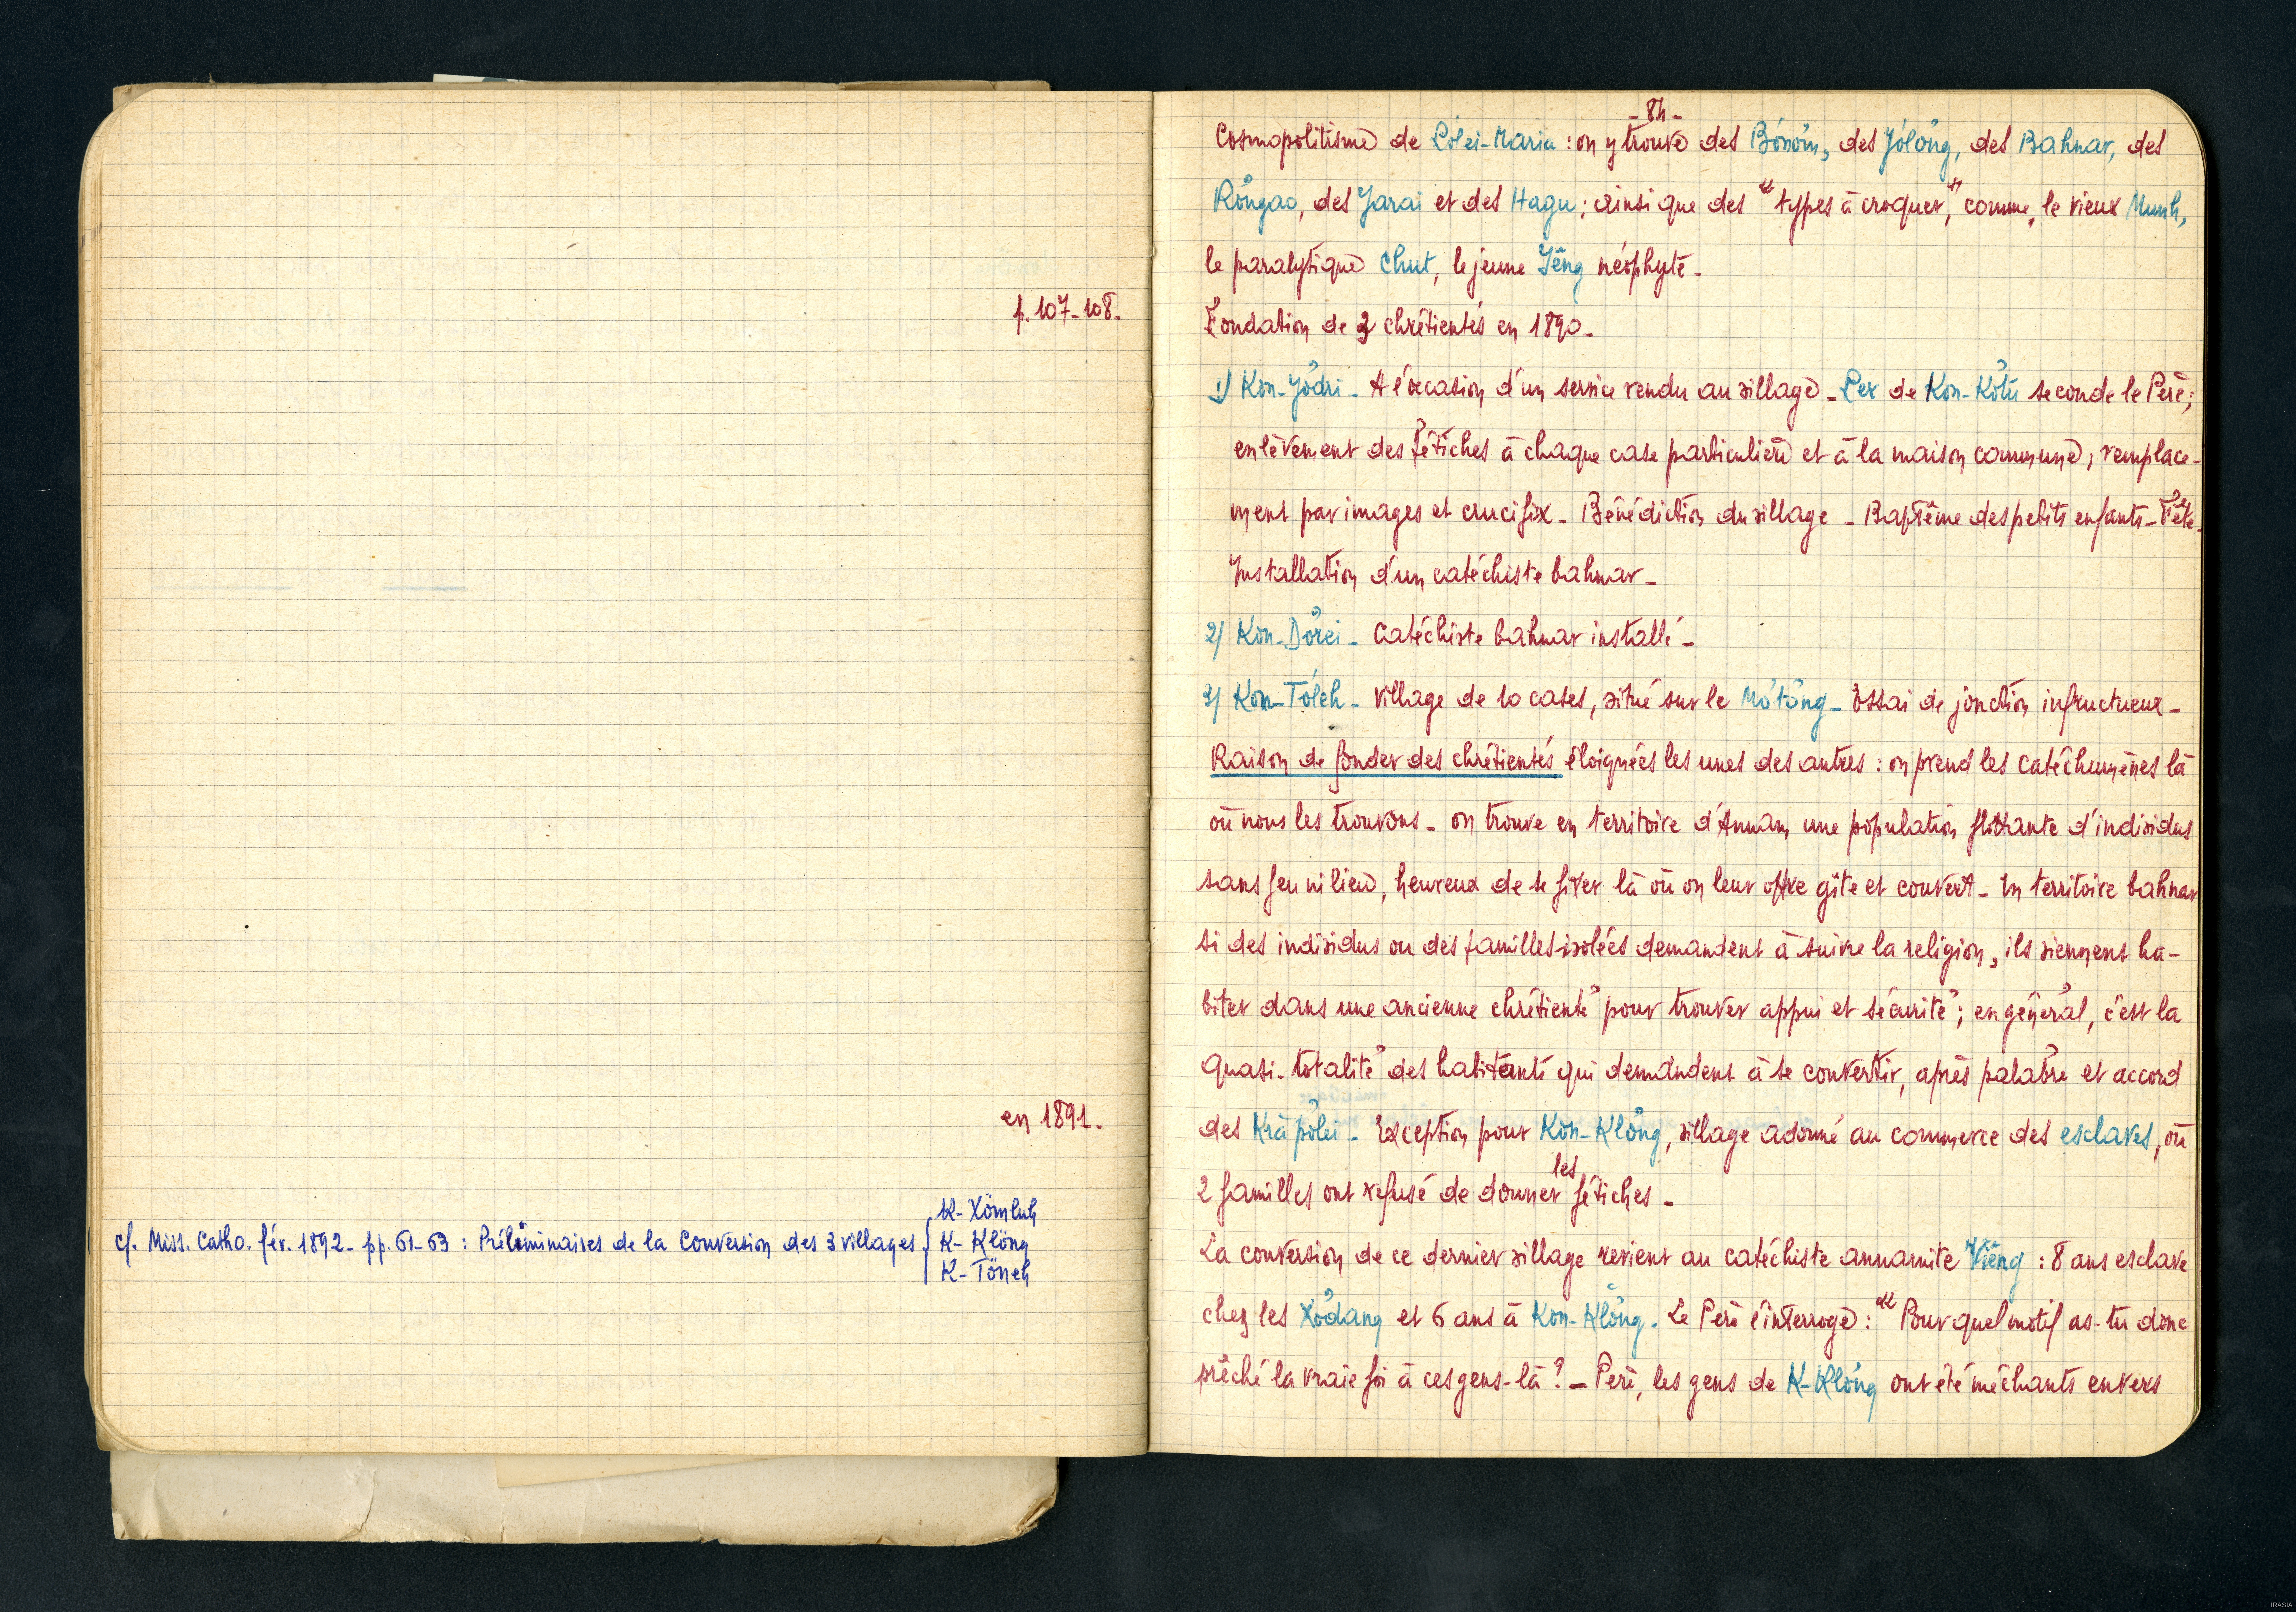 p. 107-108.
en 1891.
cf. Miss. Catho. fév. 1892 - pp. 61-63 : Préliminaires de la Conversion des 3 villages { K- Xömluh
K- Klöng
K- Töneh
- 84 -
Cosmopolitisme de Pólei-Maria : on y trouve des Bónöm, des Jólöng, des Bahnar, des
Röngao, des Jarai et des Hagu ; ainsi que des "types à croquer", comme, le vieux Munh,
le paralytique Chut, le jeune Jêng néophyte -
Fondation de 3 chrétientés en 1890 -
1) Kon-Jödri - A l'occasion d'un service rendu au village - Pex de Kon-Kötu seconde le Père ;
enlèvement des fétiches à chaque case particulière et à la maison commune ; remplace-
ment par images et crucifix - Bénédiction du village - Baptême des petits enfants - Fête -
Installation d'un catéchiste bahnar -
2) Kon-Dörei - Catéchiste bahnar installé -
3) Kon-Tóleh - village de 10 cases, situé sur le Mótöng - Essai de jonction infructueux -
Raison de fonder des chrétientés éloignées les unes des autres : on prend les catéchumènes là
où nous les trouvons - on trouve en territoire d'Annam, une population flottante d'individus
sans feu ni lieu, heureux de se fixer là où on leur offre gîte et couvert - En territoire bahnar
si des individus ou des familles isolées demandent à suivre la religion, ils viennent ha-
biter dans une ancienne chrétienté pour trouver appui et sécurité ; en général, c'est la
quasi-totalité des habitants qui demandent à se convertir, après palabre et accord
des Krà pölei - Exception pour Kon-Klöng, village adonné au commerce des esclaves, où
2 familles ont refusé de donner les fétiches -
La conversion de ce dernier village revient au catéchiste annamite Viêng : 8 ans esclave
chez les Xödang et 6 ans à Kon-Klöng. Le Père l'interroge : "Pour quel motif as-tu donc
prêché la vraie foi à ces gens-là ? - Père, les gens de K-Klöng ont été méchants envers